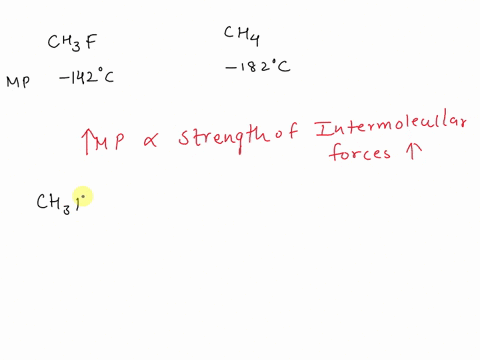 CH3F CH4
MP -142°C -182°C
↑MP ∝ strength of Intermolecular
forces ↑
CH3